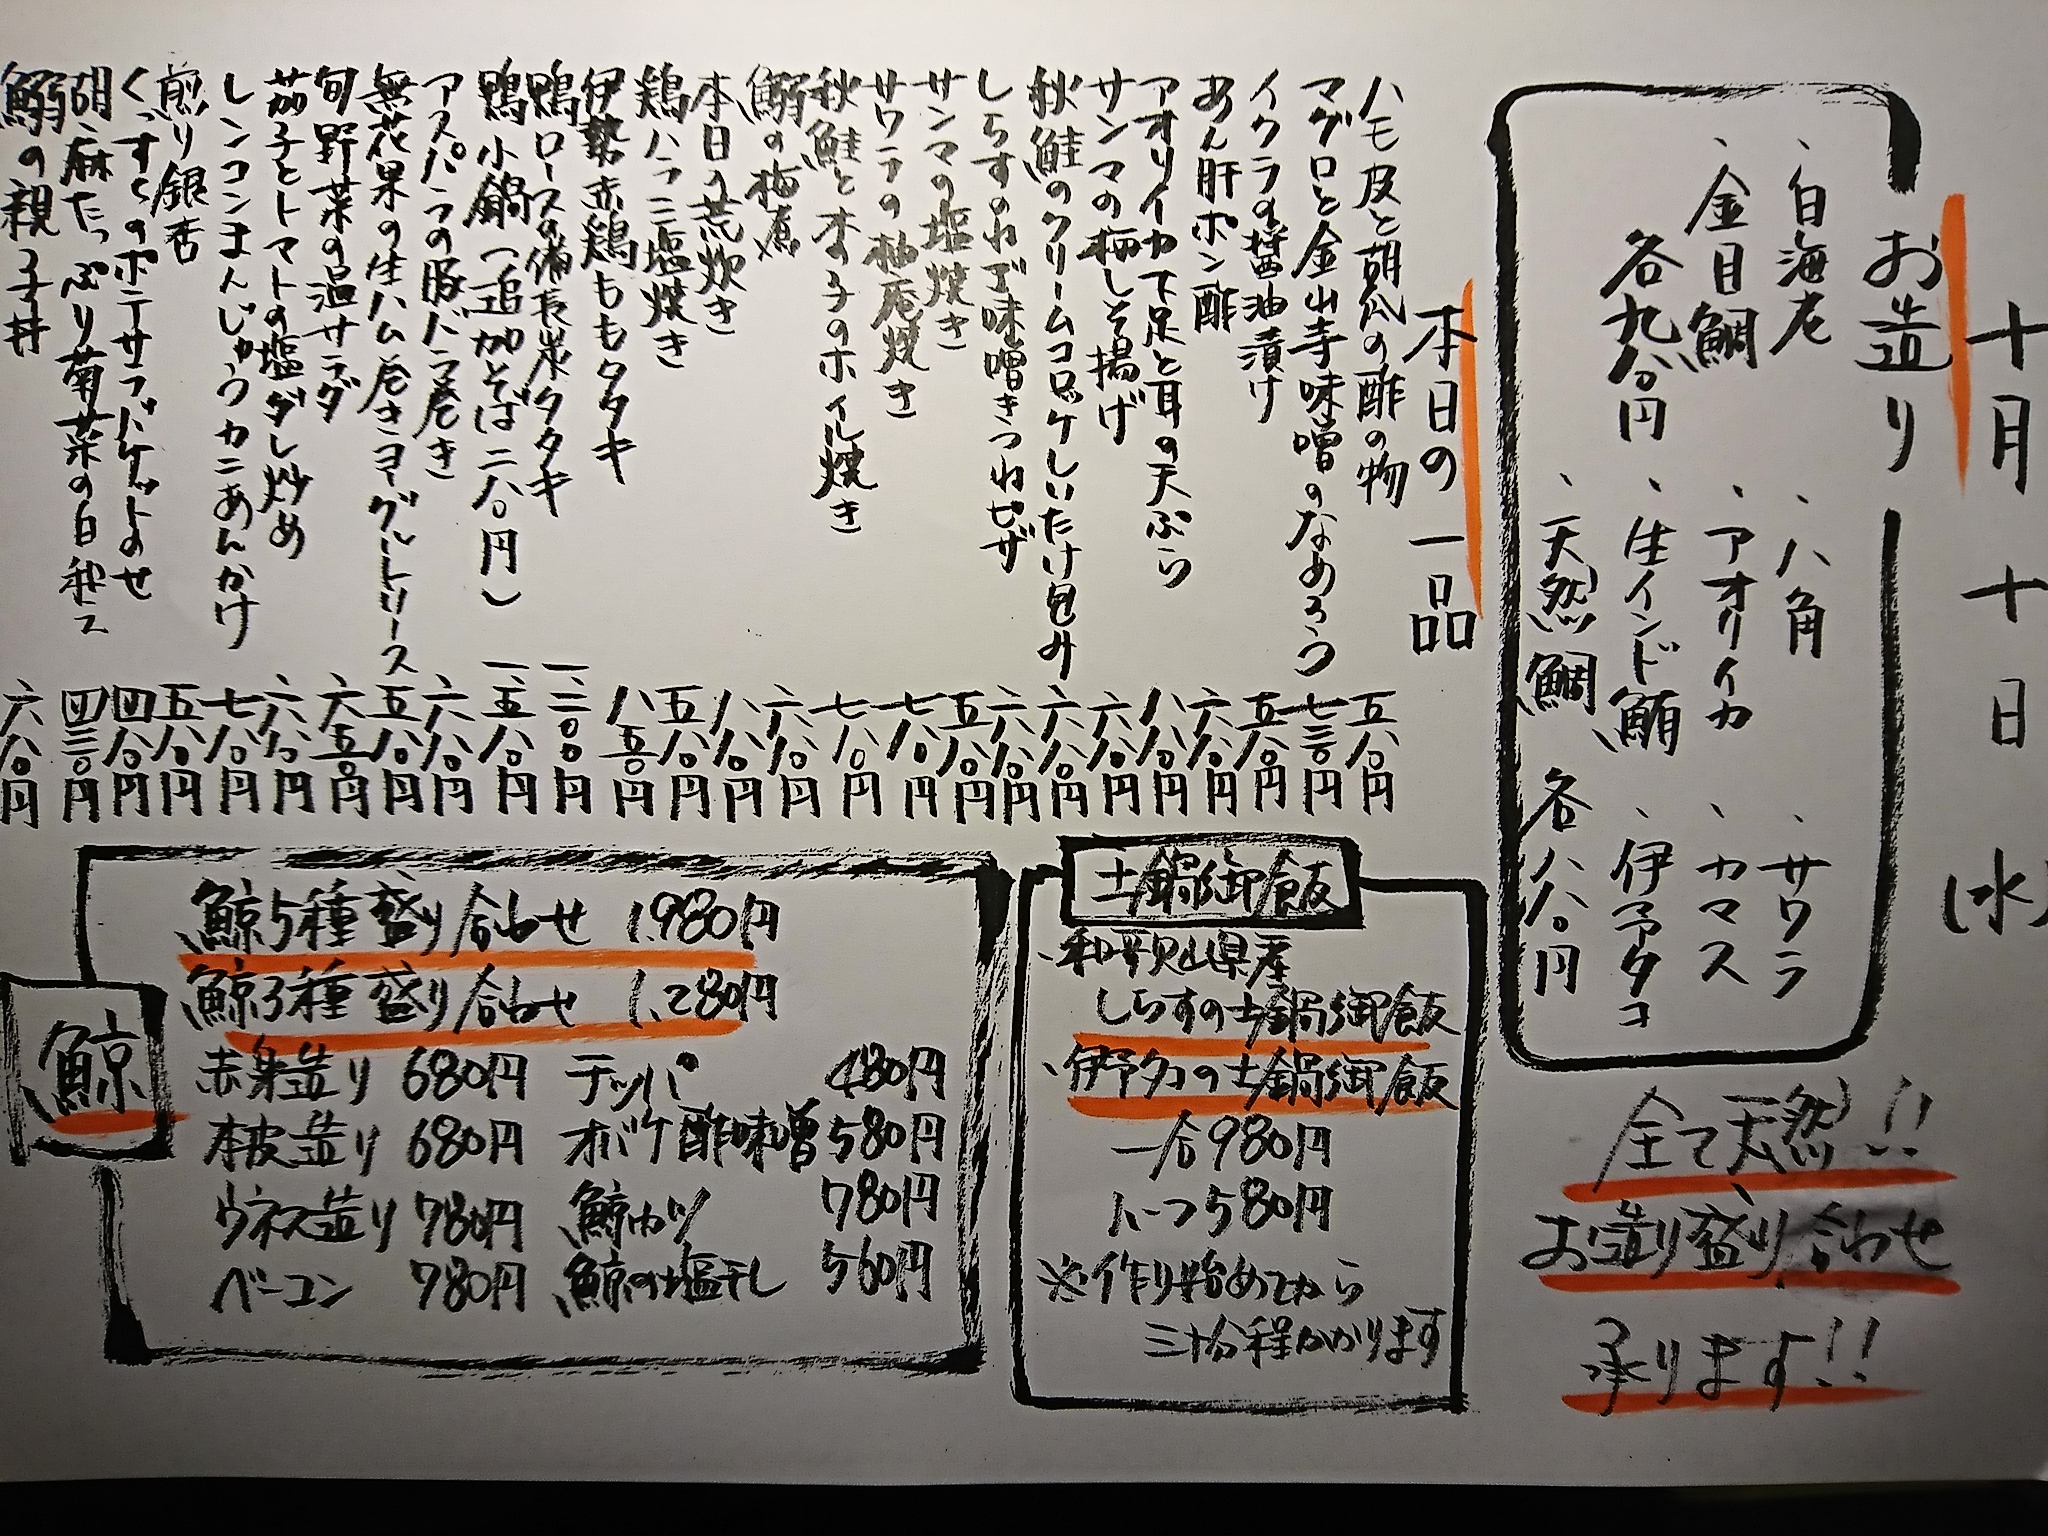 十月十日(水)
お造り
、白海老
、金目鯛
各九八〇円
、八角
、アオリイカ
、生インド鮪
、天然鯛
、サワラ
、カマス
、伊予タコ
各八八〇円
全て天然!!
お造り盛り合わせ
承ります!!
本日の一品
ハモ皮と胡瓜の酢の物 五八〇円
マグロと金山寺味噌のなめろう 七三〇円
イクラの醤油漬け 五八〇円
あん肝ポン酢 六八〇円
アオリイカ下足と耳の天ぷら 八八〇円
サンマの梅しそ揚げ 六八〇円
秋鮭のクリームコロッケしいたけ包み 六八〇円
しらすのねぎ味噌きつねピザ 六八〇円
サンマの塩焼き 五八〇円
サワラの柚庵焼き 七八〇円
秋鮭と木の子のホイル焼き 七八〇円
鰯の梅煮 六八〇円
本日の荒炊き 八八〇円
鶏ハラミ塩焼き 五八〇円
伊勢赤鶏ももタタキ 八五〇円
鴨ロースの備長炭タタキ 一、二〇〇円
鴨小鍋(追加そば二八〇円) 一、五八〇円
アスパラの豚バラ巻き 六八〇円
無花果の生ハム巻きヨーグルトソース 五八〇円
旬野菜の温サラダ 六五〇円
茄子とトマトの塩ダレ炒め 六八〇円
レンコンまんじゅうカニあんかけ 七八〇円
煎り銀杏 五八〇円
くんすものポテサラバゲットのせ 四八〇円
胡麻たっぷり菊菜の白和え 四三〇円
鰯の親子丼 六八〇円
土鍋御飯
・和歌山県産
しらすの土鍋御飯
・伊予タコの土鍋御飯
一合980円
ハーフ580円
※作り始めてから
三十分程かかります
鯨
鯨5種盛り合わせ 1,980円
鯨3種盛り合わせ 1,280円
赤身造り 680円 テッパ 480円
本皮造り 680円 オバケ酢味噌 580円
ウネス造り 780円 鯨カツ 780円
ベーコン 780円 鯨の塩干し 560円